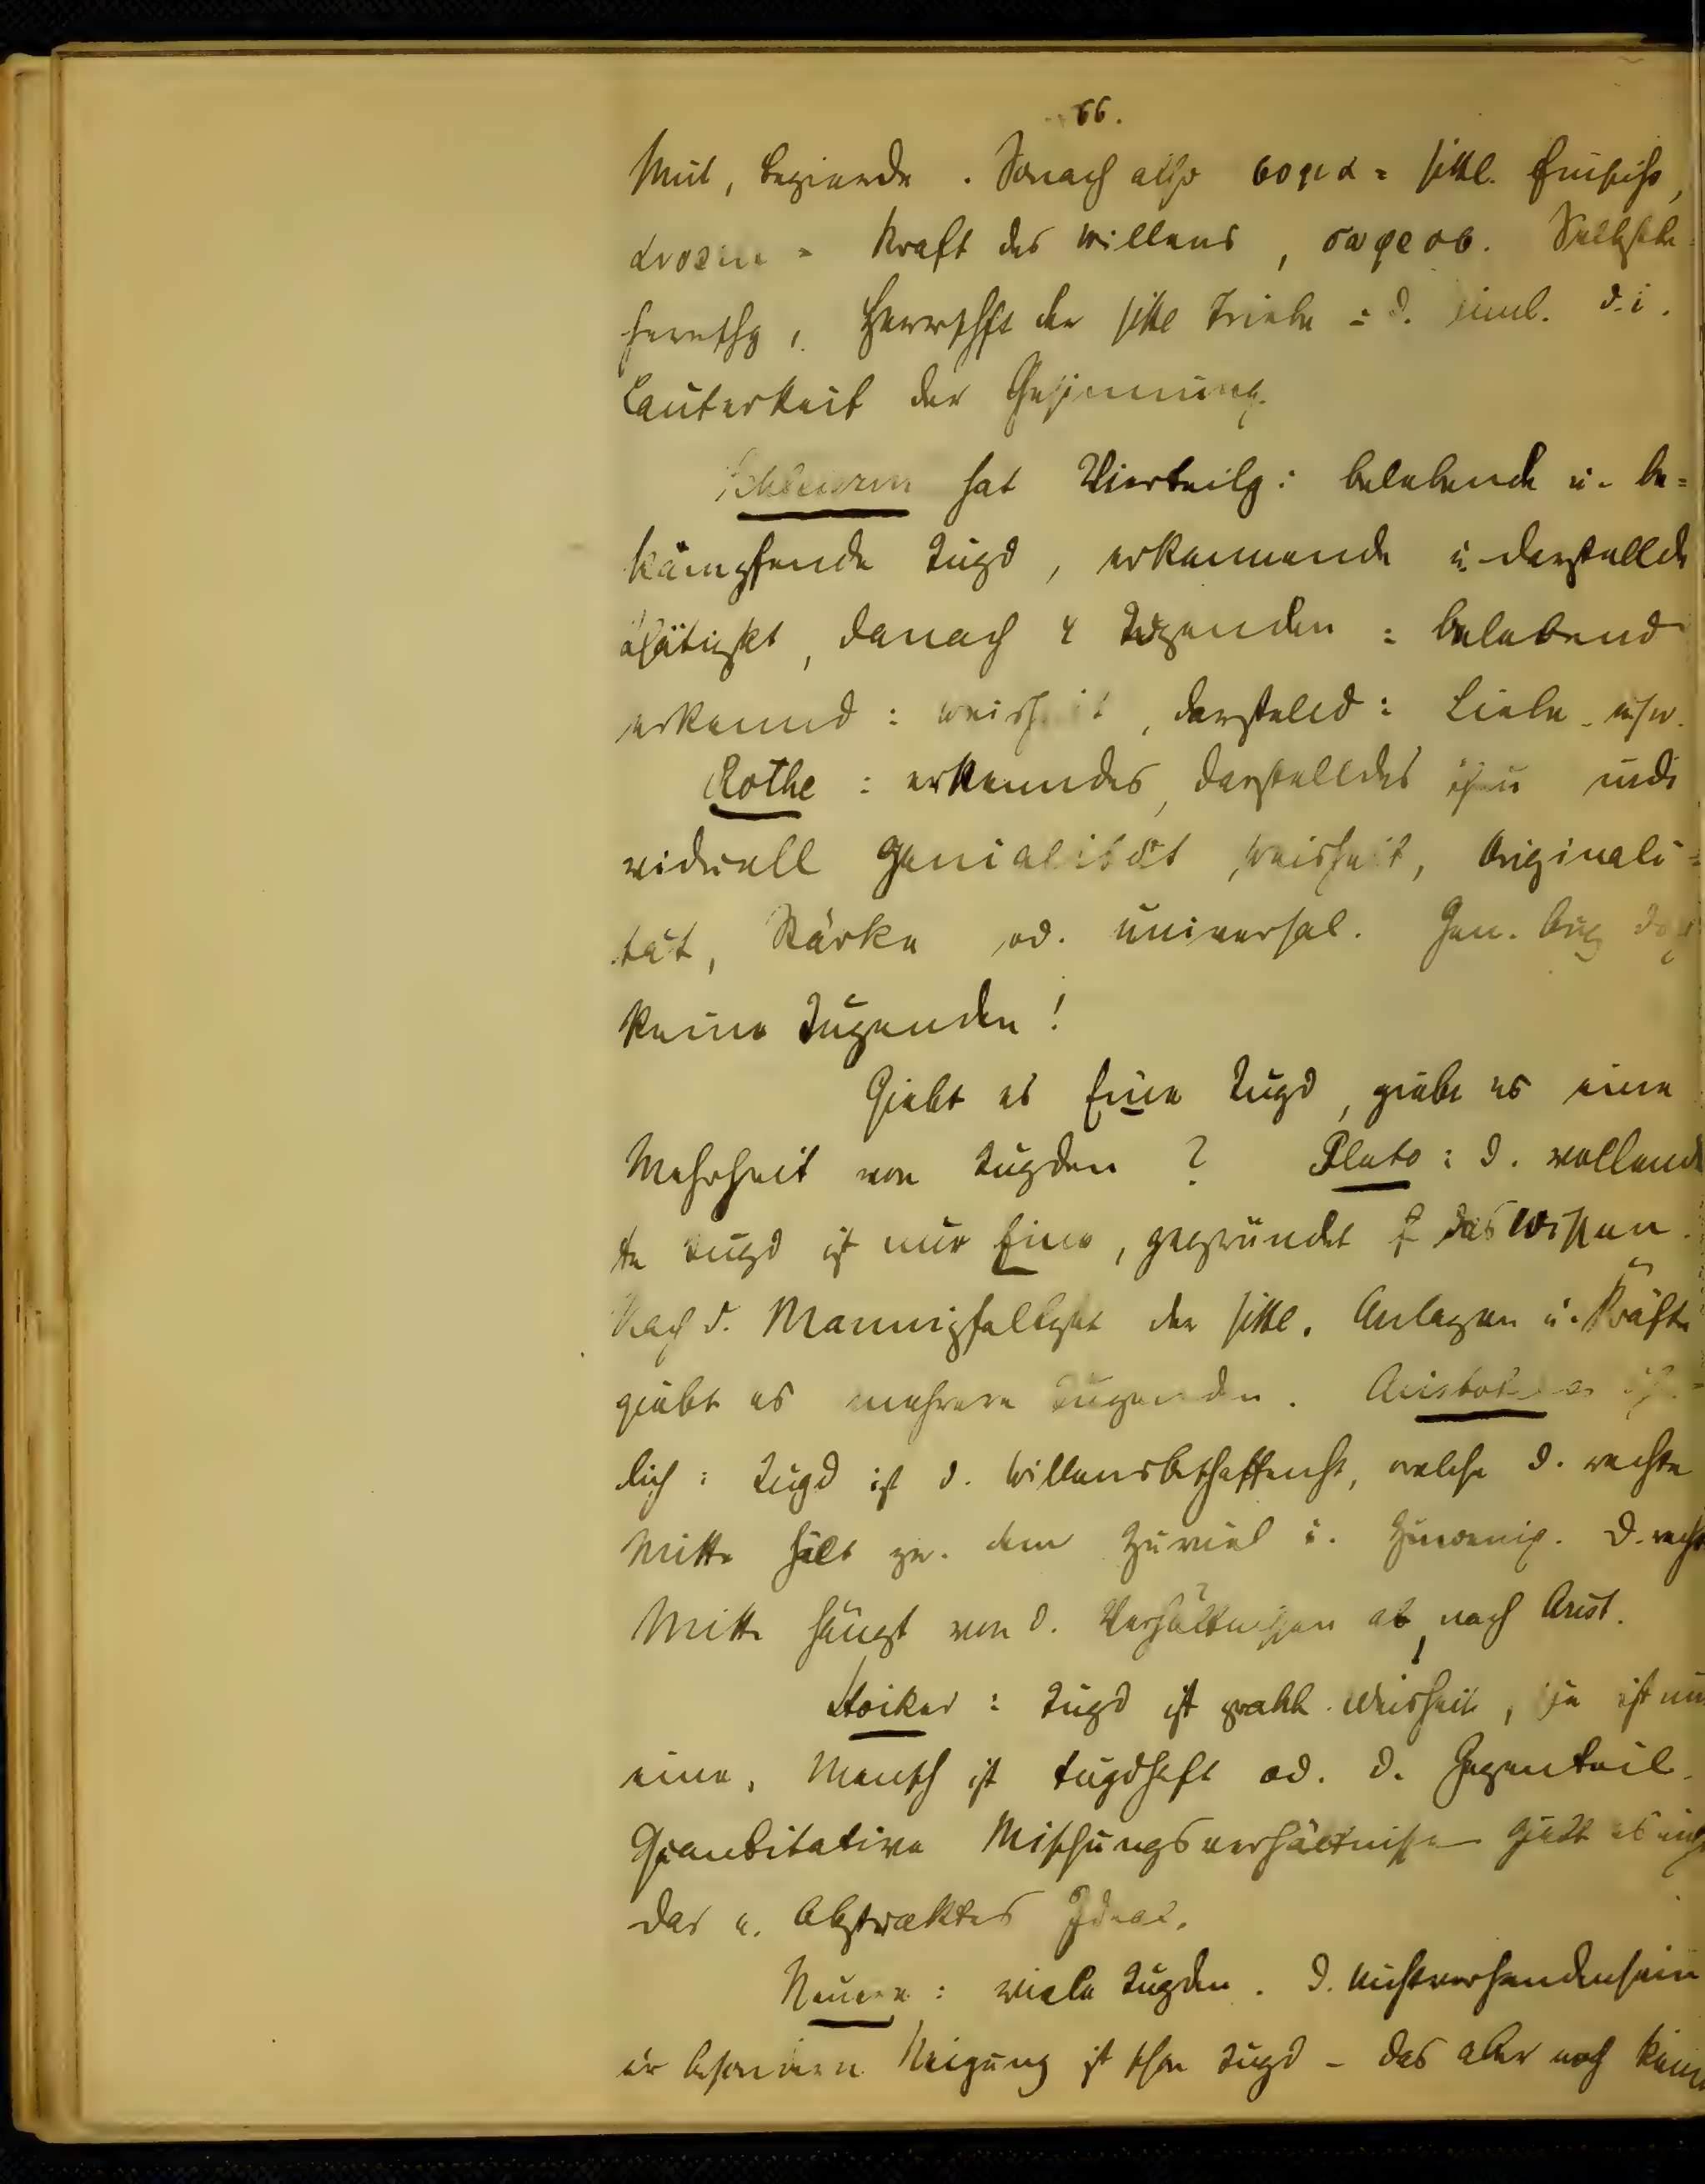 66.
Mut, Begierde. Danach also σοφια = sittl. Einsicht,
ανδρεια = Kraft des Willens, σωφροσ. Selbstbe-
herrschg, Herrschft der sittl Triebe = d. sinnl. d. i.
Lauterkeit der Gesinnung.
Schleierm hat Vierteilg: belebende u. be=
kämpfende Tugd, erkennende u. darstellde
Thätigkt, danach 4 Tugenden: belebend
erkennd: Weisheit, darstelld: Liebe usw.
Rothe: erkenndes, darstelldes Thun indi
viduell Genialität Weisheit, Originali=
tät, Stärke od. universal. Gen. Orig
keine Tugenden!
Giebt es Eine Tugd, giebt es eine
Mehrheit von Tugden? Plato: d. vollende
te Tugd ist nur Eine, gegründet das Wissen.
Nach d. Mannigfaltigkt der sittl. Anlagen u. Kräfte
giebt es mehrere Tugenden. Aristoteles
lich: Tugd ist d. Willensbeschaffenht, welche d. rechte
Mitte hält zw. dem Zuviel u. Zuwenig. D. recht
Mitte hängt von d. Verhältnissen ab, nach Arist.
Stoiker: Tugd ist prakt. Weisheit, sie ist nur
eine, Mensch ist tugdhaft od. d. Gegenteil.
Quantitative Mischungsverhältnisse giebt es nicht
das a. Abstraktes Ideal.
Neuere: viele Tugden. D. Nichtvorhandensein
er besonderen Neigung ist schon Tugd - das aber noch keine